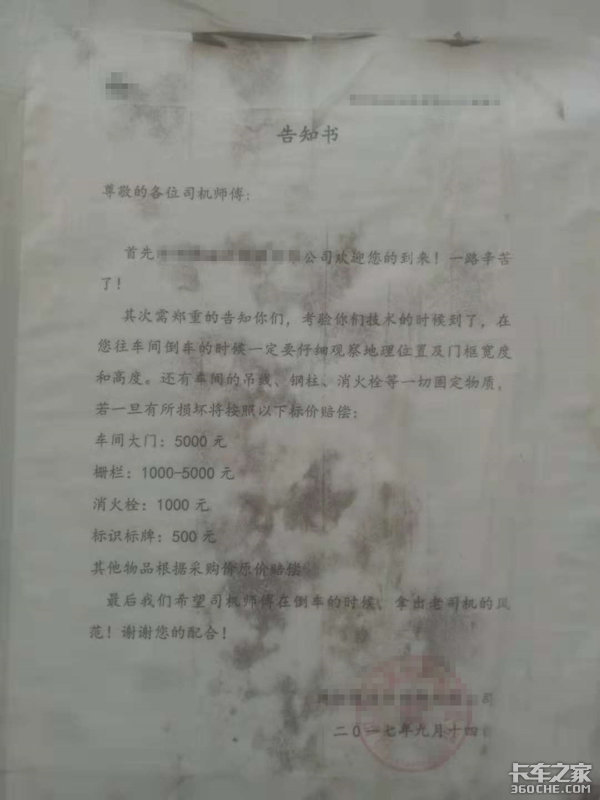 告知书
尊敬的各位司机师傅：
首先
公司欢迎您的到来！一路辛苦
了！
其次需郑重的告知你们，考验你们技术的时候到了，在
您往车间倒车的时候一定要仔细观察地理位置及门框宽度
和高度。还有车间的吊线、钢柱、消火栓等一切固定物质，
若一旦有所损坏将按照以下标价赔偿：
车间大门：5000 元
栅栏：1000-5000 元
消火栓：1000 元
标识标牌：500 元
其他物品根据采购价原价赔偿
最后我们希望司机师傅在倒车的时候、拿出老司机的风
范！谢谢您的配合！
司
二〇一七年九月十四
卡车之家
360CHE.COM